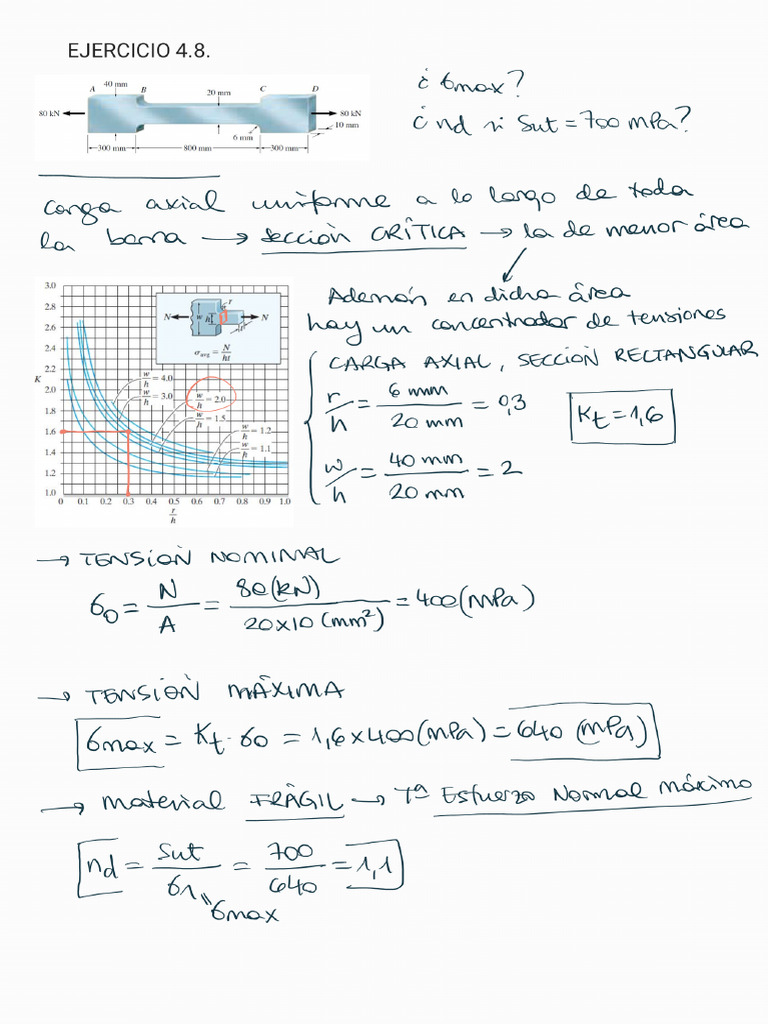 EJERCICIO 4.8.
40 mm
A B 20 mm C D
80 kN 80 kN
10 mm
6 mm
300 mm 800 mm 300 mm
¿ σmax?
¿ nd si Sut = 700 MPa?
carga axial uniforme a lo largo de toda
la barra → sección CRÍTICA → la de menor área
Además en dicha área
hay un concentrador de tensiones
3.0
2.8
2.6
2.4
2.2
K
2.0
1.8
1.6
1.4
1.2
1.0
0 0.1 0.2 0.3 0.4 0.5 0.6 0.7 0.8 0.9 1.0
r/h
N w h r t N
σavg = N/ht
w/h = 4.0
w/h = 3.0
w/h = 2.0
w/h = 1.5
w/h = 1.2
w/h = 1.1
CARGA AXIAL, SECCIÓN RECTANGULAR
r/h = 6 mm / 20 mm = 0,3
Kt = 1,6
w/h = 40 mm / 20 mm = 2
→ TENSIÓN NOMINAL
σo = N/A = 80(kN) / 20x10 (mm²) = 400(MPa)
→ TENSIÓN MÁXIMA
σmax = Kt · σo = 1,6 x 400(MPa) = 640 (MPa)
→ Material FRÁGIL → Tª Esfuerzo Normal Máximo
nd = Sut / σ1 = 700 / 640 = 1,1
σmax